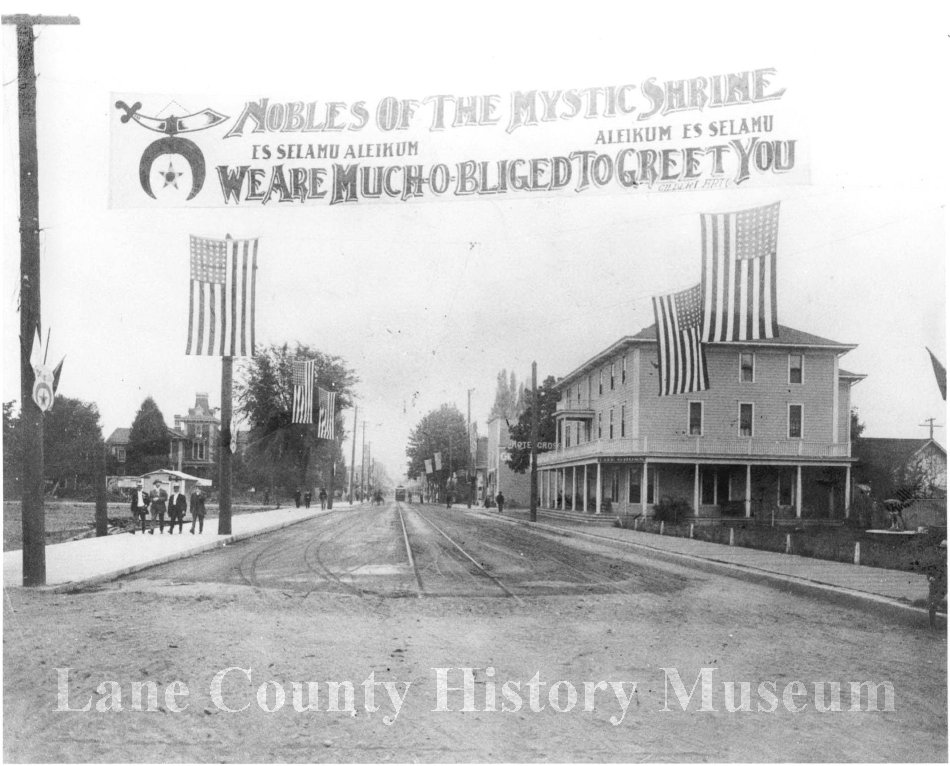 NOBLES OF THE MYSTIC SHRINE
ES SELAMU ALEIKUM ALEIKUM ES SELAMU
WE ARE MUCH-O-BLIGED TO GREET YOU
HOTEL GROSS
Lane County History Museum